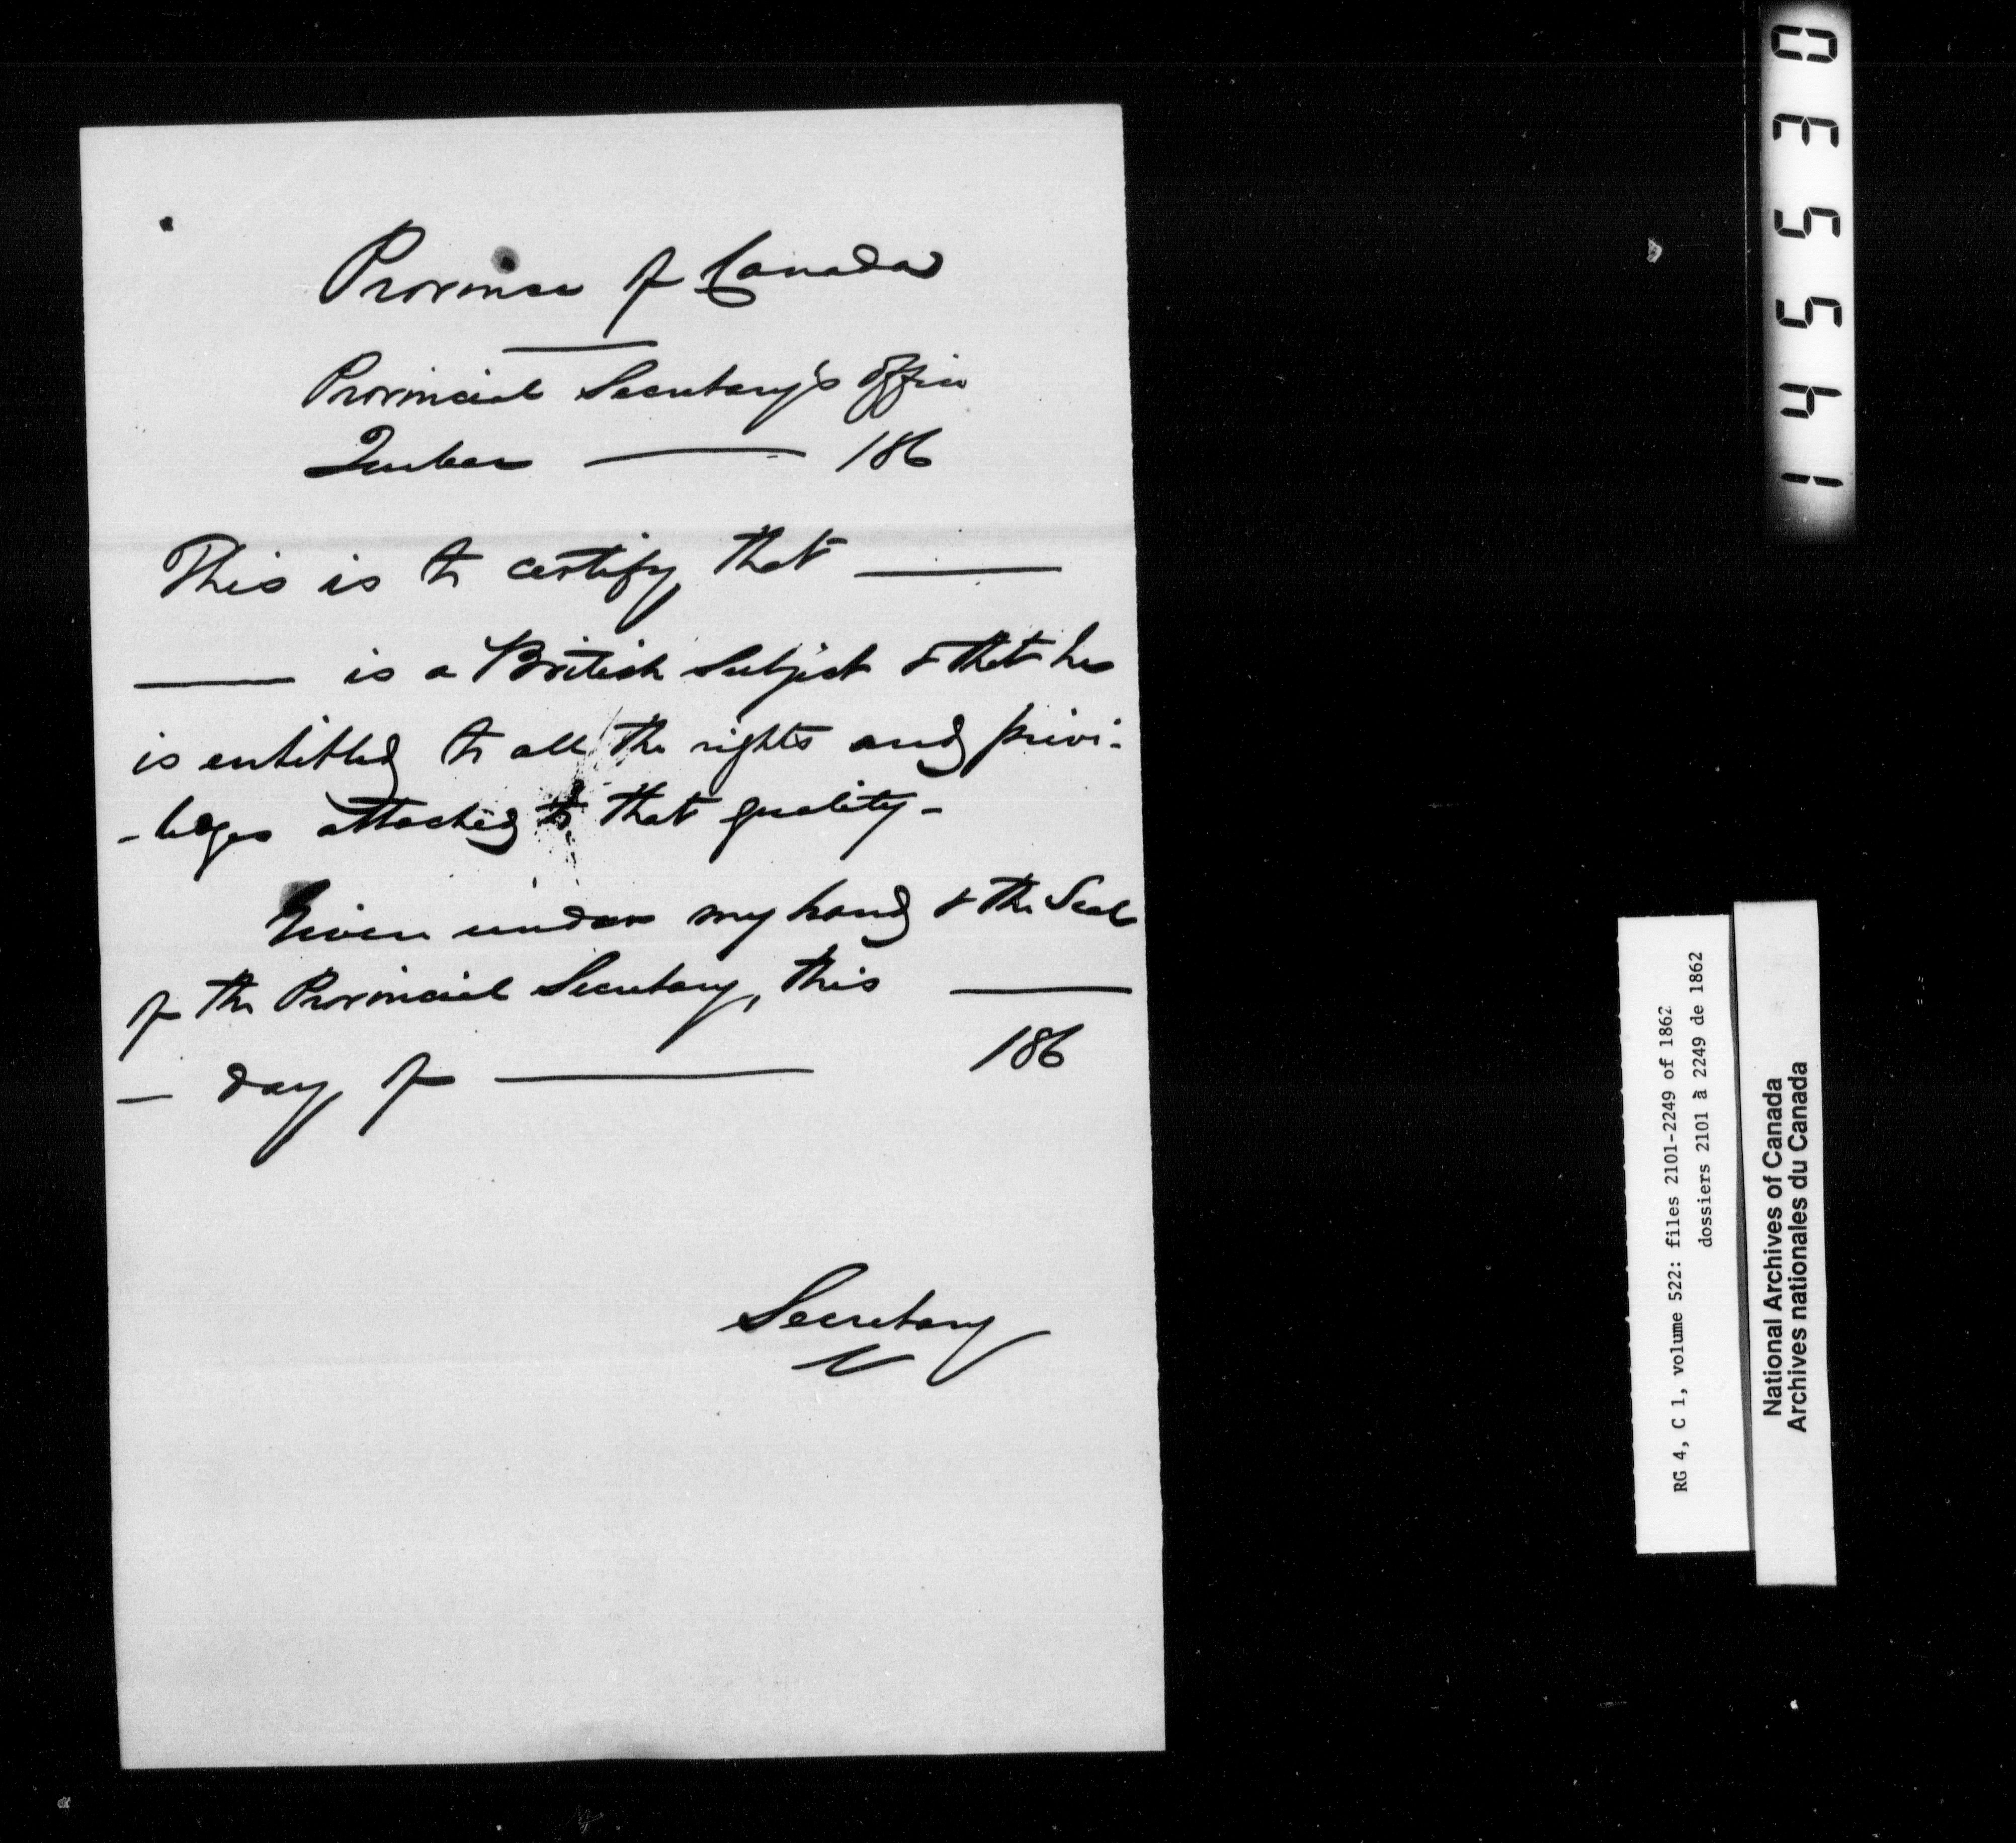 Province of Canada
Provincial Secretary's Office
Quebec —— 186
This is to certify that ——
—— is a British Subject & that he
is entitled to all the rights and privi-
-leges attached to that quality -
Given under my hand & the Seal
of the Provincial Secretary, this ——
— day of —— 186
Secretary
145530
RG 4, C 1, volume 522: files 2101-2249 of 1862
dossiers 2101 à 2249 de 1862
National Archives of Canada
Archives nationales du Canada